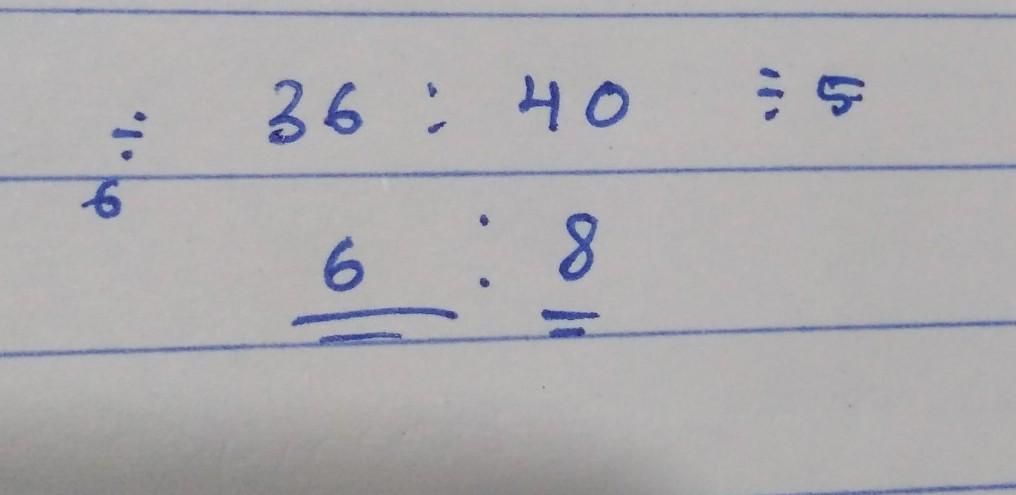 ÷ 36 : 40 ÷ 5
6
6 : 8